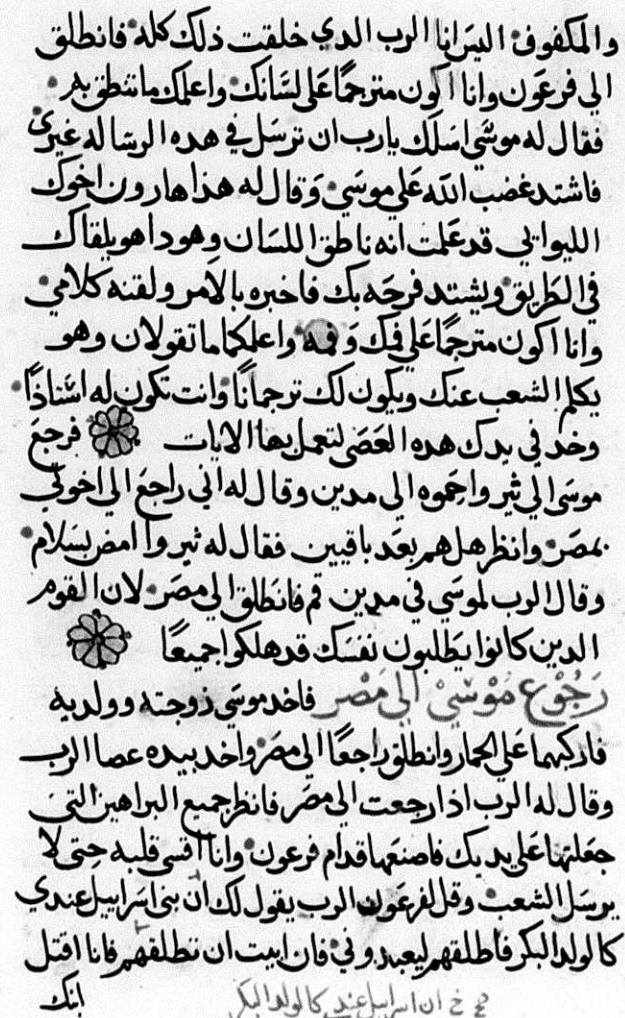 والمكفوف اليس انا الرب الدي خلقت ذلك كله فانطلق
الي فرعون وانا اكون مترجمًا علي لسانك واعلمك ما تنطق به
فقال له موسي اسلك يارب ان ترسل في هده الرساله غيري
فاشتد غضب الله علي موسي وقال له هذا هارون اخوك
الليواني قد علمت انه ناطق اللسان وهودا هو يلقاك
في الطريق ويشتد فرحه بك فاخبره بالامر ولقنه كلامي
وانا اكون مترجمًا علي فيك وفمه واعلمكما ما تقولان وهو
يكلم الشعب عنك ويكون لك ترجمانًا وانت تكون له استاذًا
وخد في يدك هده العصي لتعمل بها الايات فرجع
موسي الي ثيروا حموه الي مدين وقال له اني راجع الي اخوتي
بمصر وانظر هل هم بعد باقيين فقال له ثيروا امض بسلام
وقال الرب لموسي في مدين قم فانطلق الي مصر لان القوم
الدين كانوا يطلبون نفسك قد هلكوا جميعًا
رجوع موسي الي مصر فاخد موسي زوجته وولديه
فاركبهما علي الحمار وانطلق راجعًا الي مصر واخد بيده عصا الرب
وقال له الرب اذا رجعت الي مصر فانظر جميع البراهين التي
جعلتها علي يديك فاصنعها قدام فرعون وانا اقسي قلبه حتي لا
يرسل الشعب وقل لفرعون الرب يقول لك ان بني اسراييل عندي
كالولد البكر فاطلقهم ليعبدوني فان ابيت ان تطلقهم فانا اقتل
ابنك
ان اسراييل عندي كالولد البكر